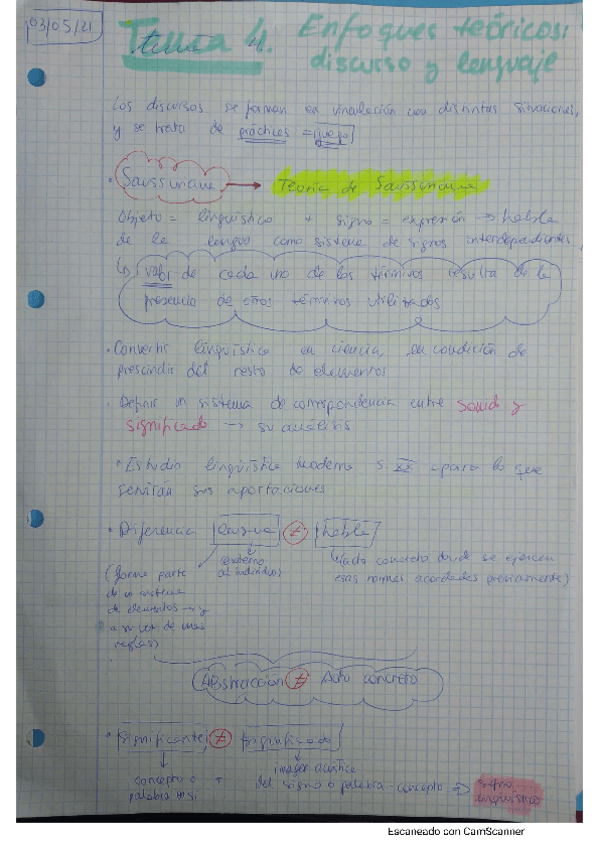 03/05/21
Tema 4. Enfoques teóricos:
discurso y lenguaje
Los discursos se forman en vinculación con distintas situaciones,
y se trata de prácticas = juego
· Saussureana → Teoría de Saussureana
Objeto = lingüístico + signo = expresión → habla
de la lengua como sistema de signos interdependientes
↳ valor de cada uno de los términos resulta de la
presencia de otros términos utilizados
· Convertir lingüística en ciencia, en condición de
prescindir del resto de elementos
· Definir un sistema de correspondencia entre sonido y
significado → su análisis
· Estudio lingüística moderna s XX para lo que
servirán sus aportaciones
· Diferencia lengua ≠ habla
(forma parte
de un sistema
de elementos → y
a su vez de unas
reglas)
externo
al individuo
↳ (acto concreto donde se ejercen
esas normas acordadas previamente)
Abstracción ≠ Acto concreto
· Significante ≠ Significado
concepto o
palabra en sí
+
imagen acústica
del signo o palabra - concepto ⇒ signo
lingüístico
Escaneado con CamScanner